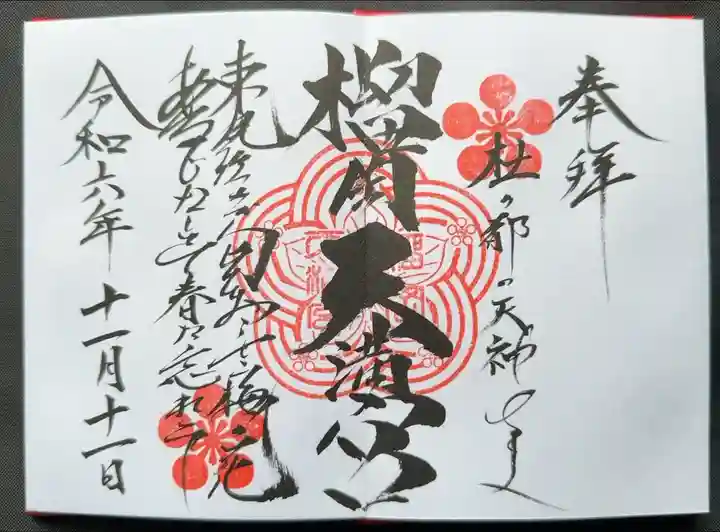 奉拝
杜の都の天神さま
榴岡天満宮
東風吹かば匂ひおこせよ梅の花
主なしとて春な忘れそ
令和六年 十一月十一日